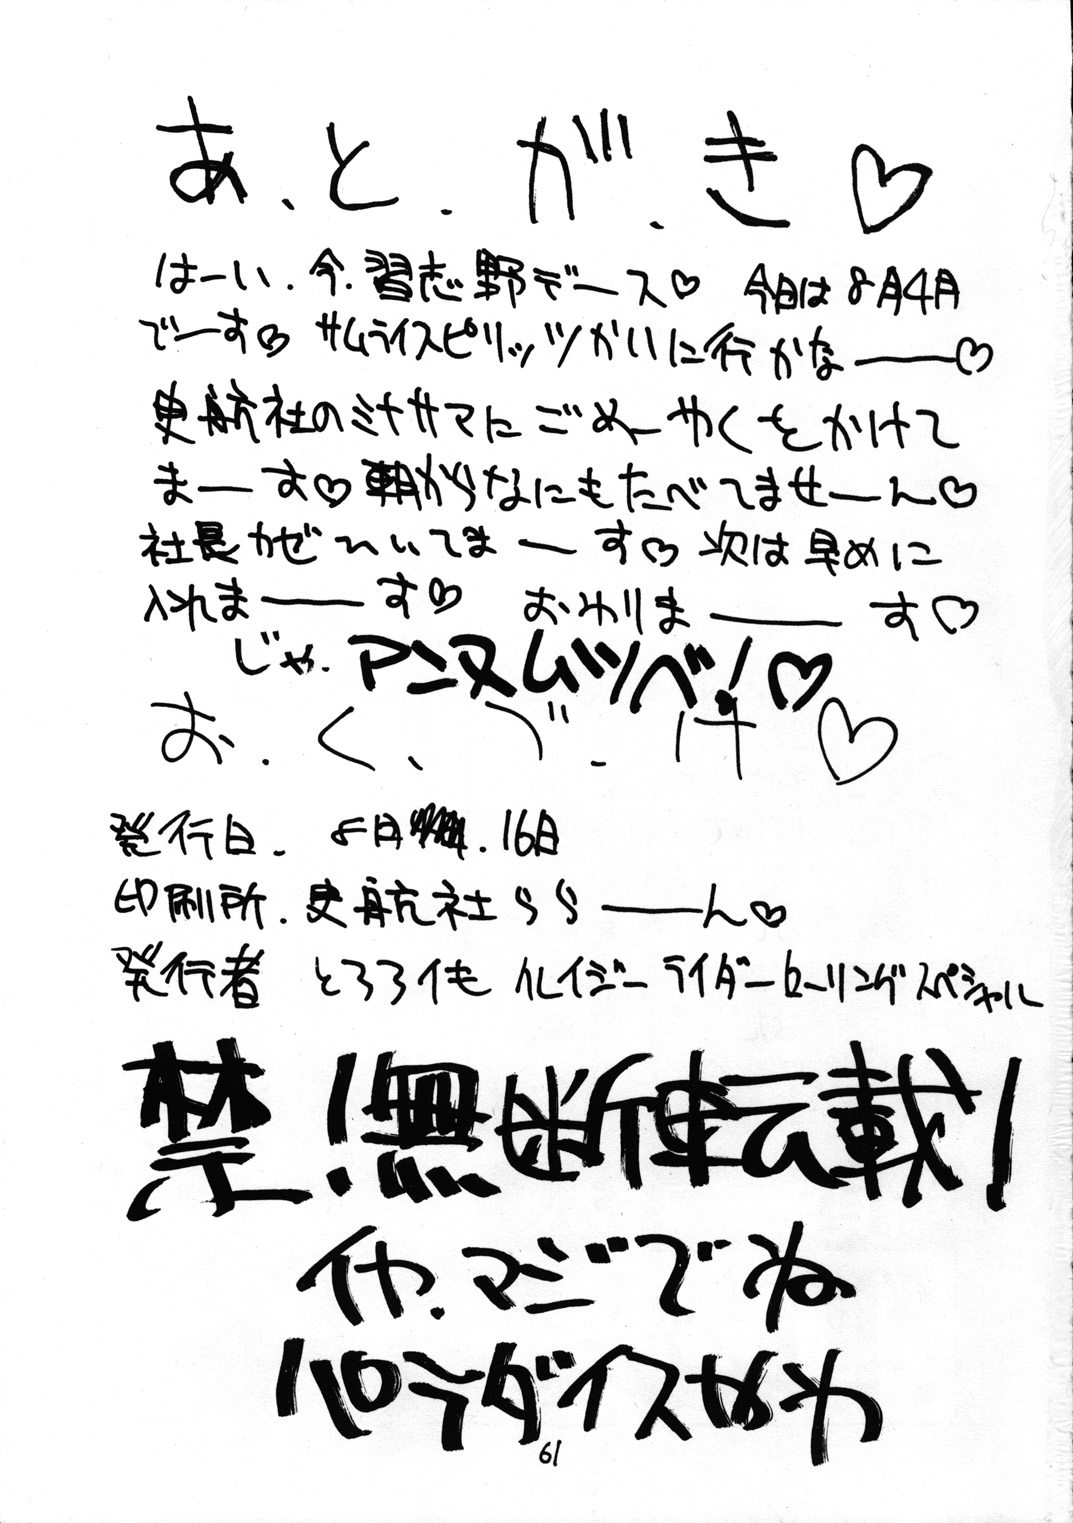 あ、と、が、き♡
はーい、今、習志野デース♡ 今日は8月4日
でーす♡ サムライスピリッツかいに行かなーー♡
史航社のミナサマにごめーわくをかけて
まーーす♡ 朝からなにもたべてませーーん♡
社長かぜひいてまーーす♡ 次は早めに
入れまーーーす♡ おわりまーーーす♡
じゃ、アンヌムツベ!♡
お、く、づ、け♡
発行日、8月 、16日
印刷所、史航社ららーーーん♡
発行者 とろろイも クレイジーライダーローリングスペシャル
禁!無断転載!
イヤ、マジでね
パラダイスなわ
61